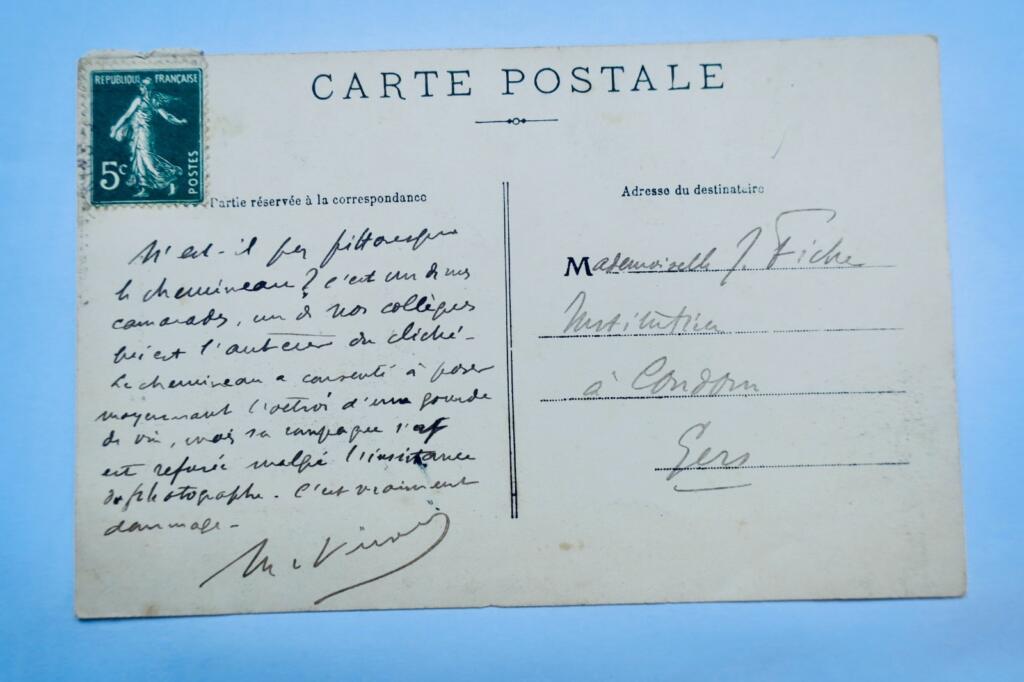 CARTE POSTALE
REPUBLIQUE FRANÇAISE
5c
POSTES
Partie réservée à la correspondance
N'est-il pas pittoresque
le chemineau? C'est un de mes
camarades, un de nos collègues
qui est l'auteur du cliché-
Le chemineau a consenti à poser
moyennant l'octroi d'une gourde
de vin, mais sa compagne s'
est refusée malgré l'insistance
du photographe. C'est vraiment
dommage-
Adresse du destinataire
Mademoiselle J. Fiche
Institutrice
à Condom
Gers